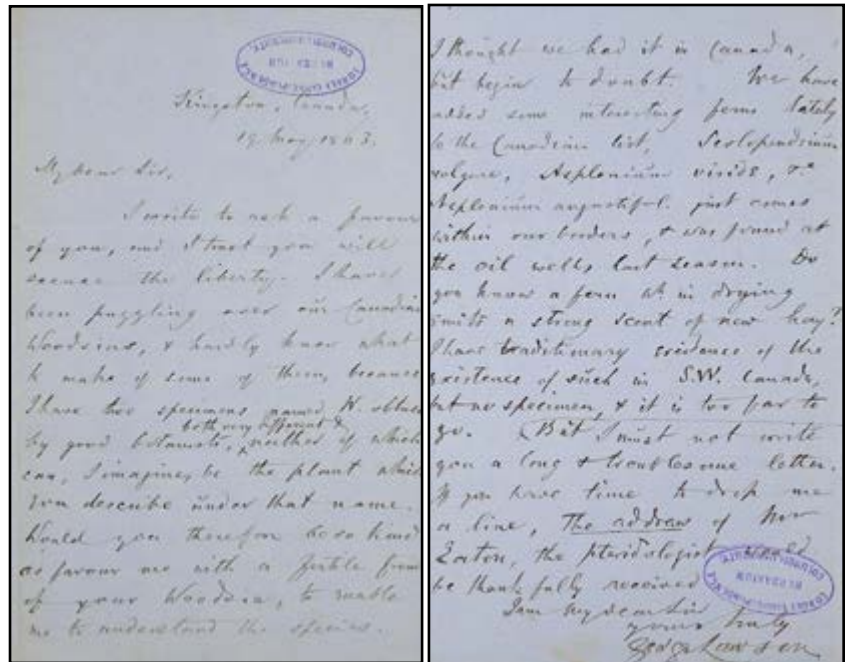 Kingston, Canada,
19 May 1863.
My dear Sir,
I write to ask a favour
of you, and I trust you will
excuse the liberty. I have
been puzzling over our Canadian
Woodsias, & hardly know what
to make of some of them, because
I have two specimens named W. obtusa
both very different &
by good botanists, neither of which
can, I imagine, be the plant which
you describe under that name.
Would you therefore be so kind
as favour me with a fertile frond
of your Woodsia, to enable
me to understand the species.
I thought we had it in Canada,
but begin to doubt. We have
added some interesting ferns lately
to the Canadian list, Scolopendrium
vulgare, Asplenium viride, &c
Asplenium angustifol. just comes
within our borders, & was found at
the oil wells last season. Do
you know a fern wh. in drying
emits a strong scent of new hay?
I have traditionary evidence of the
existence of such in S.W. Canada,
but no specimen, & it is too far to
go. But I must not write
you a long & troublesome letter.
If you have time to drop me
a line, The address of
Eaton, the pteridologist would
be thankfully received
I am my dear Sir
yours truly
George Lawson